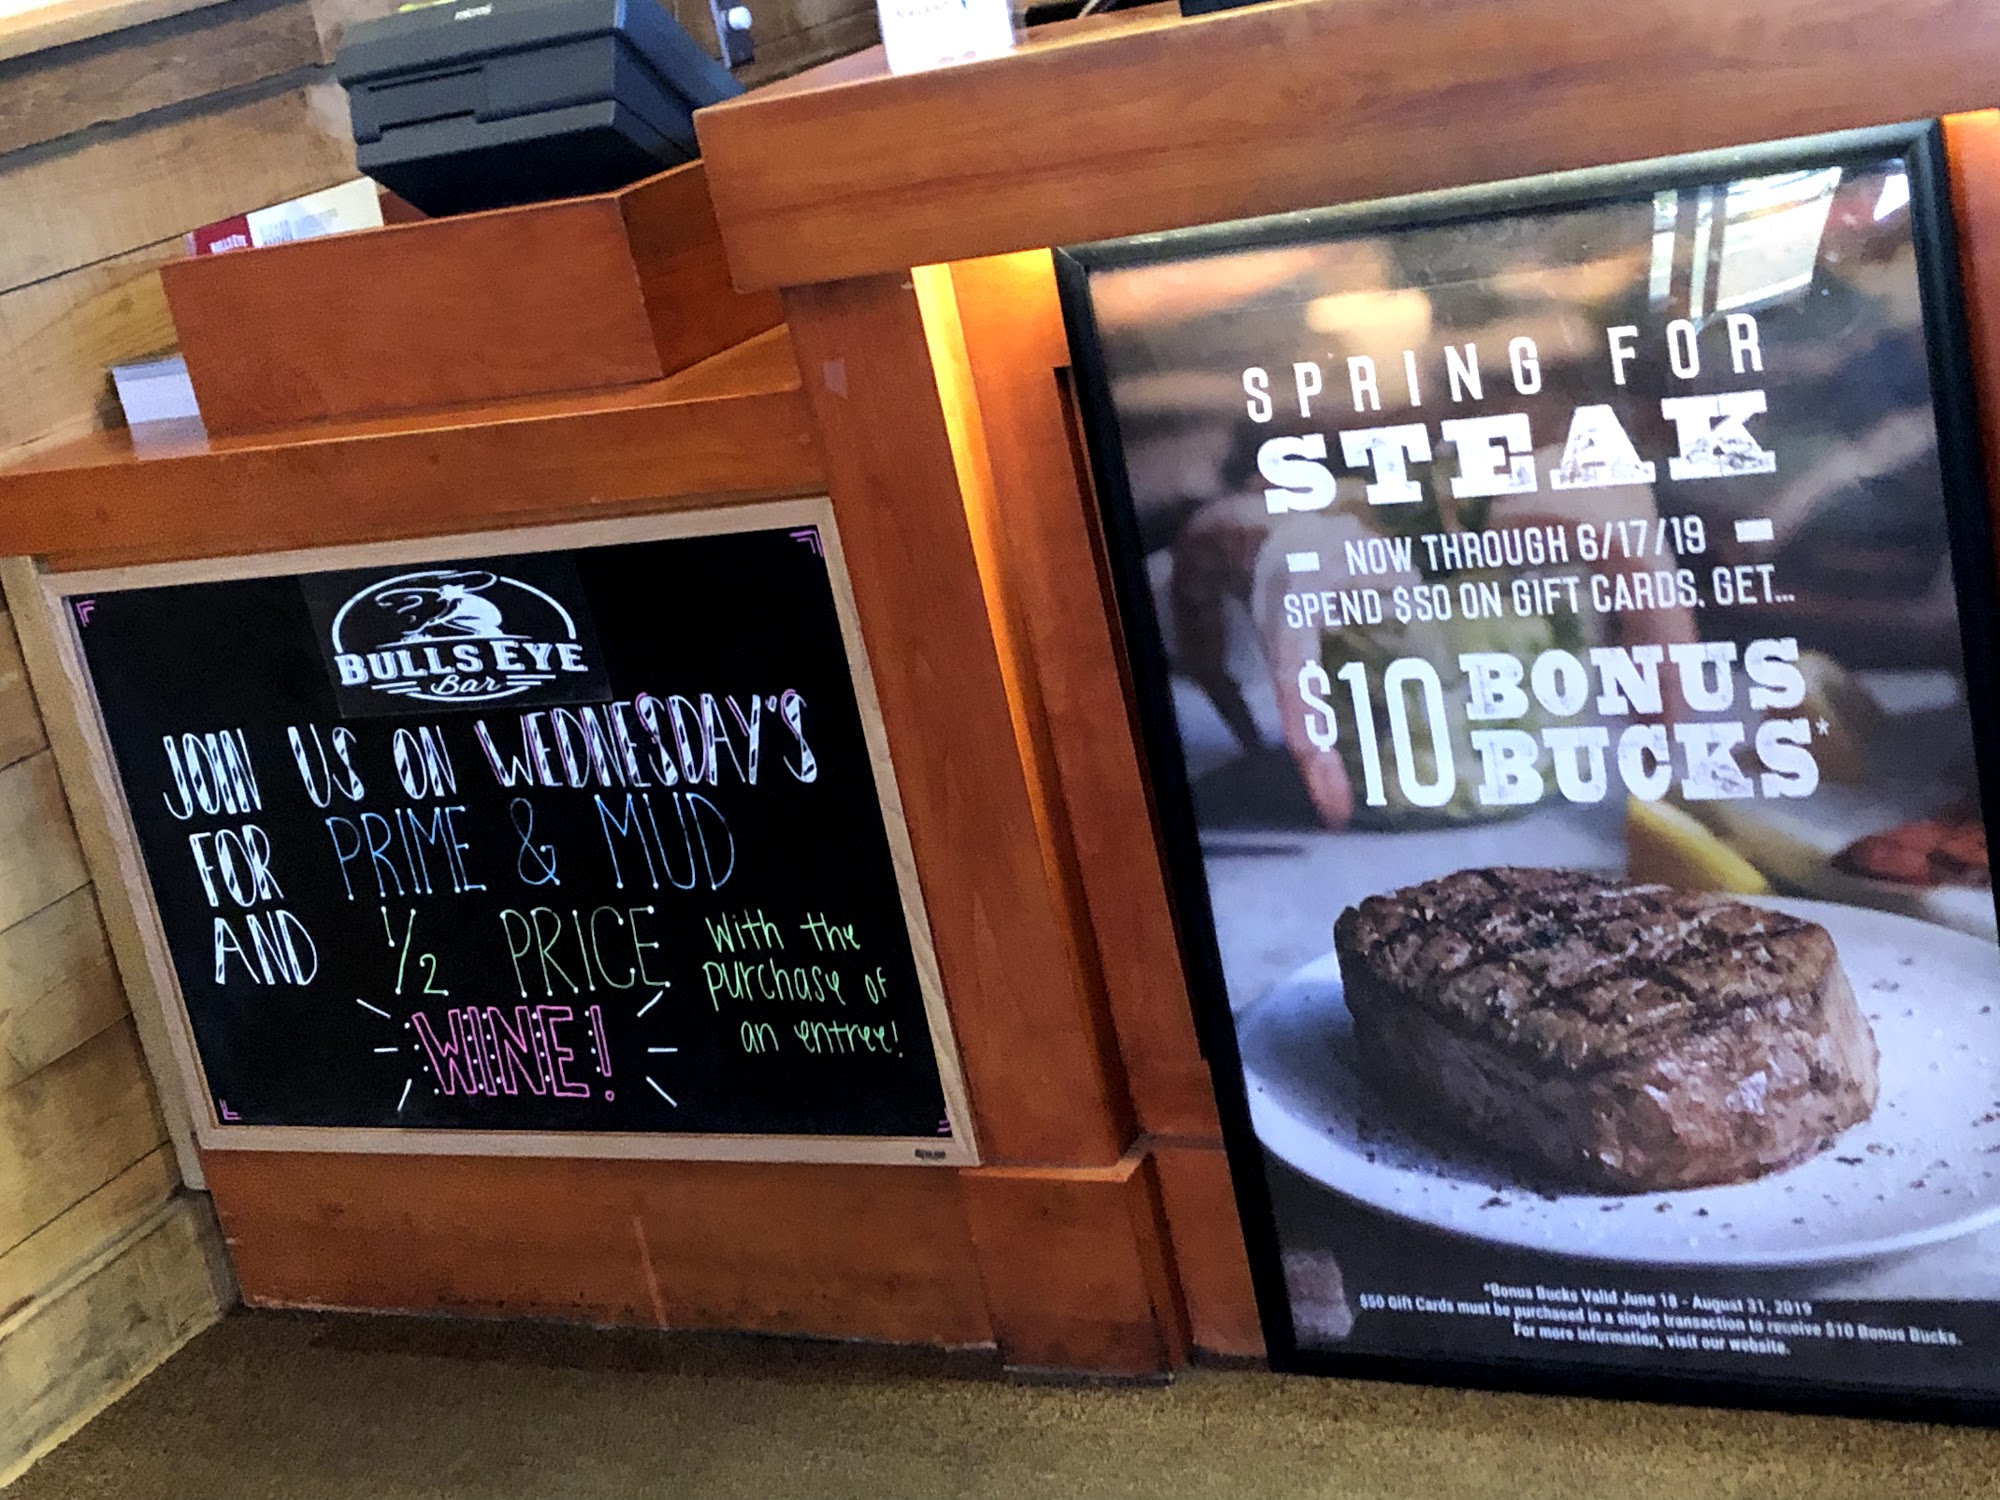 micros
BULLS EYE
BULLS EYE
Bar
JOIN US ON WEDNESDAY'S
FOR PRIME & MUD
AND 1/2 PRICE
WINE!
With the
purchase of
an entree!
SPRING FOR
STEAK
NOW THROUGH 6/17/19
SPEND $50 ON GIFT CARDS, GET...
$10 BONUS
BUCKS*
*Bonus Bucks Valid June 18 - August 31, 2019
$50 Gift Cards must be purchased in a single transaction to receive $10 Bonus Bucks.
For more information, visit our website.